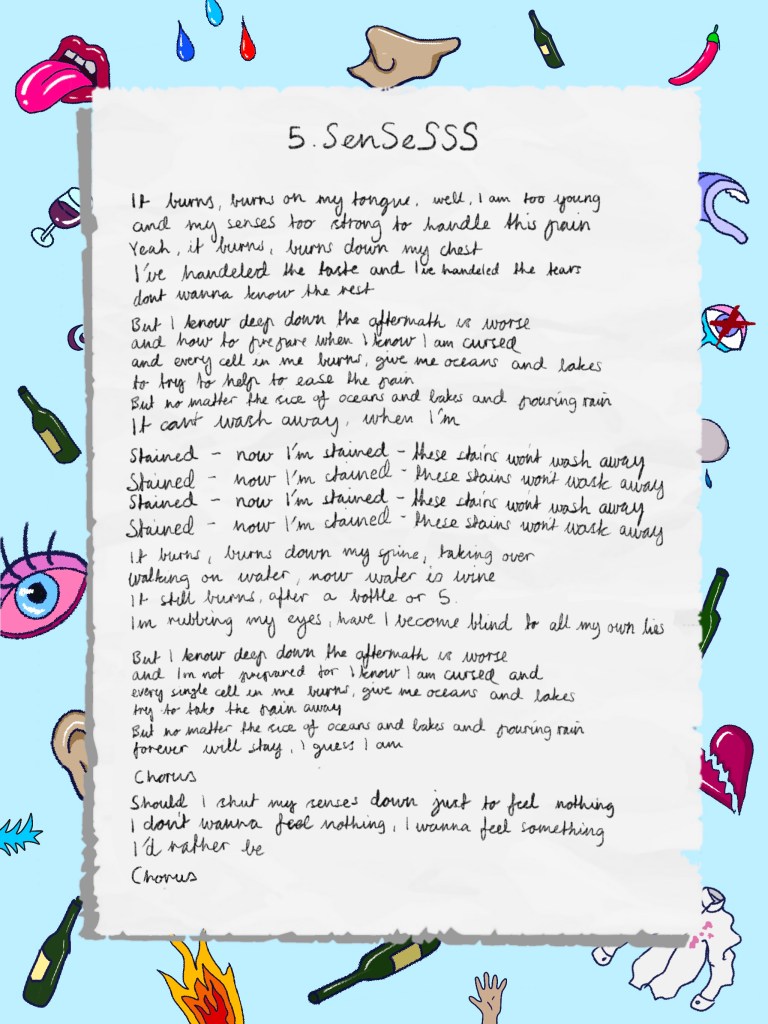 5. SenSeSSS
It burns, burns on my tongue, well, I am too young
and my senses too strong to handle this pain
Yeah, it burns, burns down my chest
I've handeled the taste and I've handeled the tears
dont wanna know the rest
But I know deep down the aftermath is worse
and how to prepare when I know I am cursed
and every cell in me burns, give me oceans and lakes
to try to help to ease the pain
But no matter the sice of oceans and lakes and pouring rain
It cant wash away, when I'm
Stained - now I'm stained - these stains won't wash away
Stained - now I'm stained - these stains won't wash away
Stained - now I'm stained - these stains won't wash away
Stained - now I'm stained - these stains won't wash away
It burns, burns down my spine, taking over
Walking on water, now water is wine
It still burns, after a bottle or 5.
Im rubbing my eyes, have I become blind to all my own lies
But I know deep down the aftermath is worse
and Im not prepared for I know I am cursed and
every single cell in me burns, give me oceans and lakes
try to take the pain away
But no matter the sice of oceans and lakes and pouring rain
forever will stay, I guess I am
Chorus
Should I shut my senses down just to feel nothing
I don't wanna feel nothing, I wanna feel something
I'd rather be
Chorus